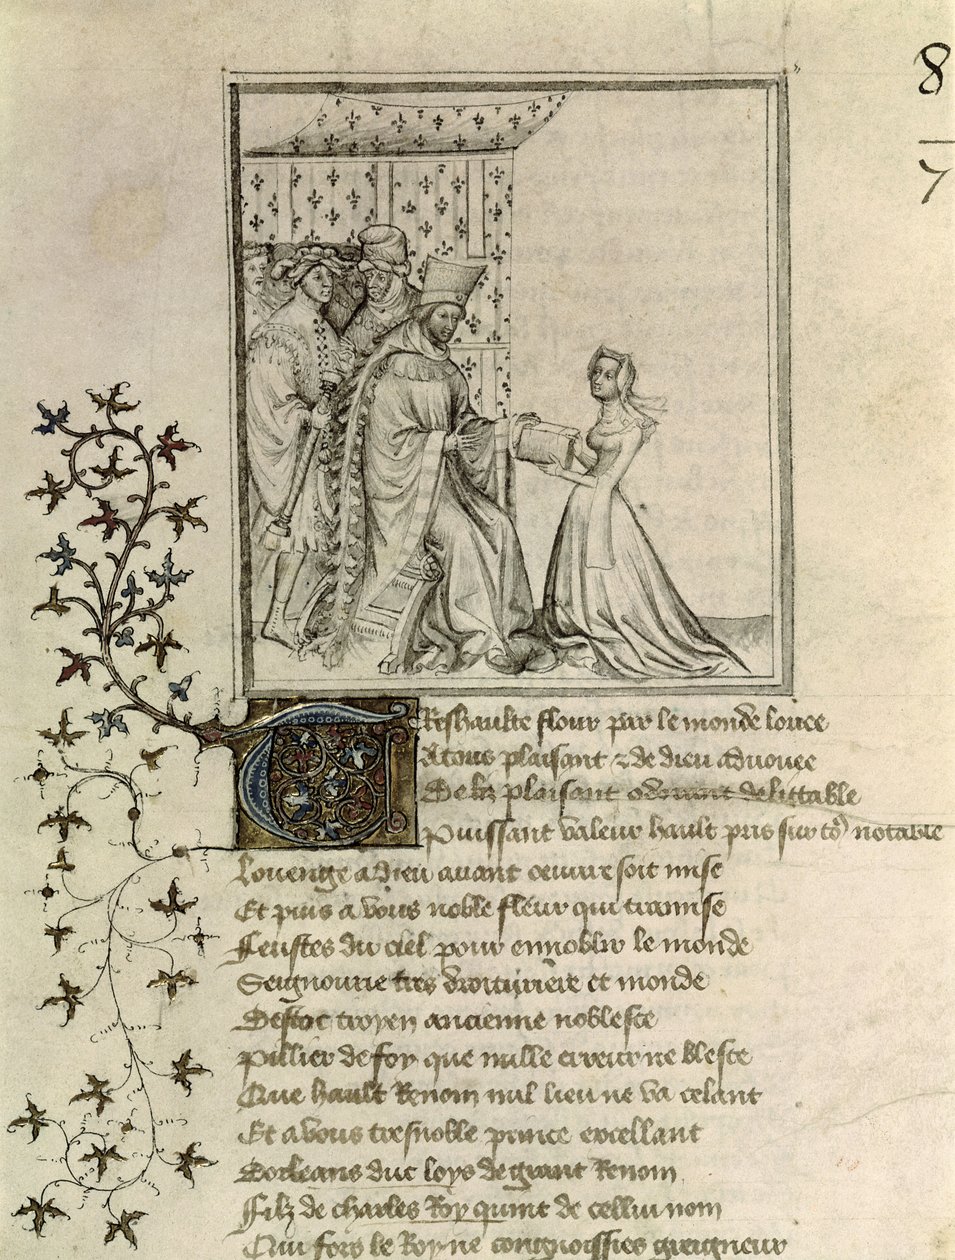 8
7
Treshaulte flour par le monde louee
A tous plaisant & de dieu advouee
De lis plaisant odourant delittable
Puissant valeur hault pris sur to9 notable
Louenge a dieu avant oeuvre soit mise
Et puis a vous noble fleur qui tramise
Feustes du ciel pour ennoblir le monde
Seignourie tres droituriere et monde
Destoc troyen ancienne noblesce
Pillier de foy que nulle erreur ne blesce
Que hault Renom nul lieu ne va celant
Et a vous tresnoble prince excellant
Dorleans duc loys de grant Renom
Filz de charles Roy quint de cellui nom
Qui fors le Roy ne congnoissies greigneur